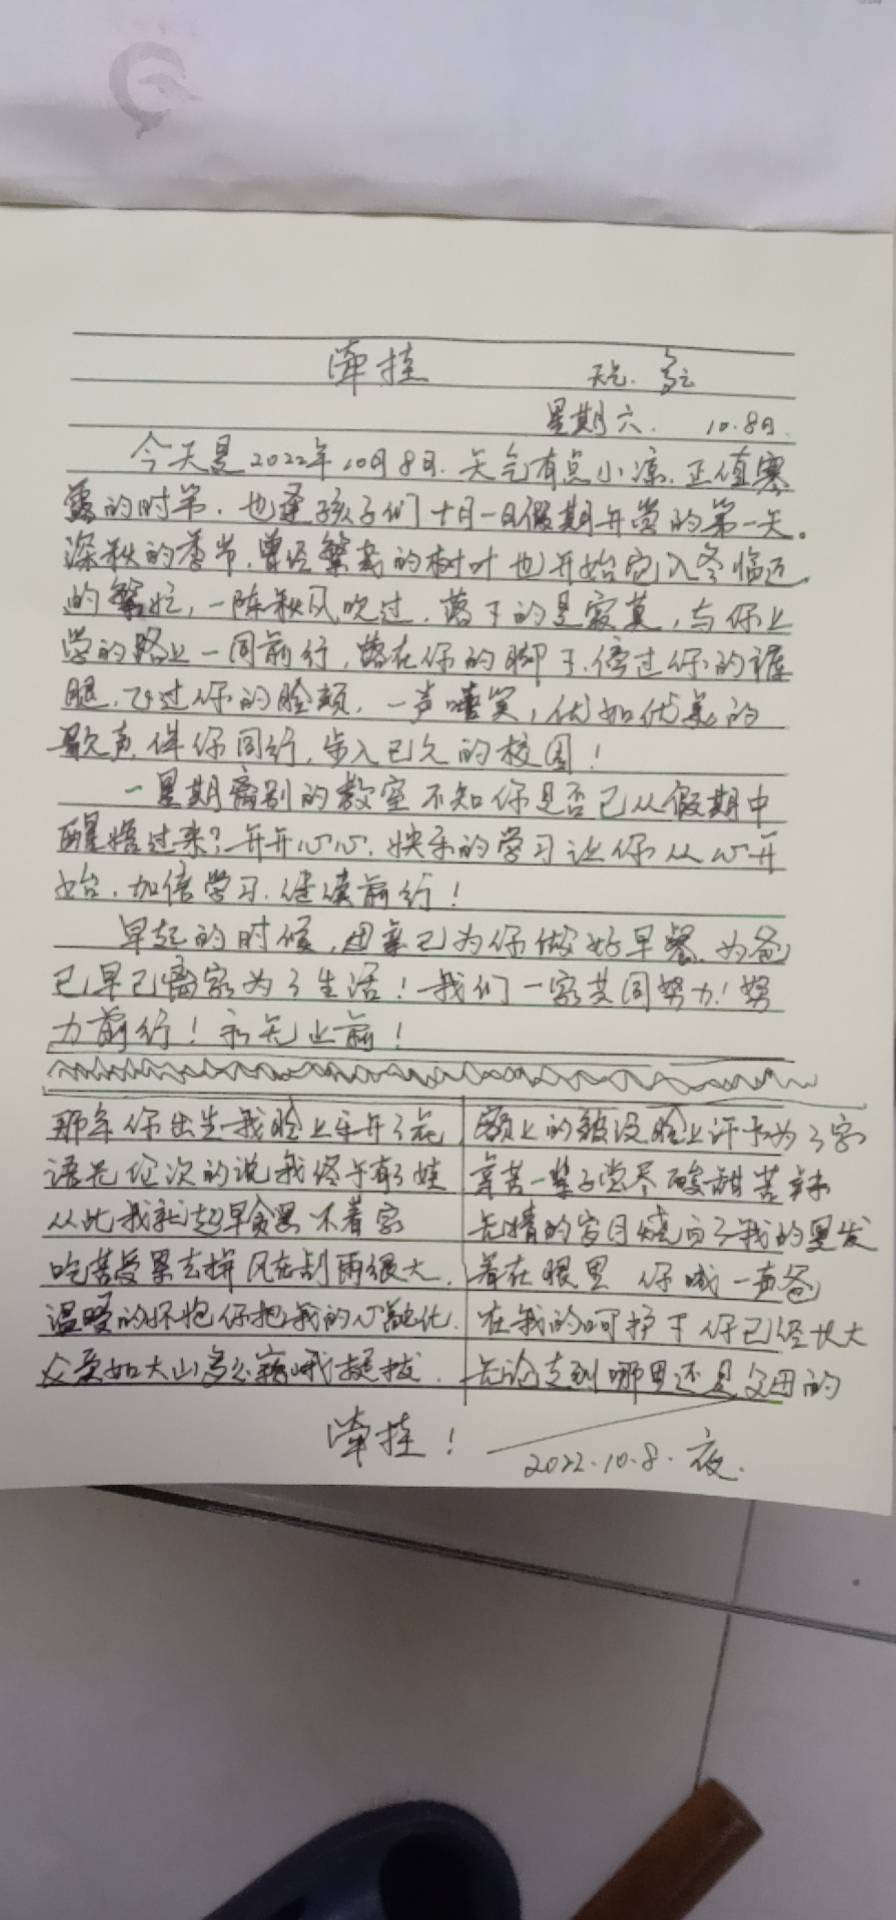 牵挂
天气. 多云
星期六. 10.8日.
今天是2022年10月8日.天气有点小凉.正值寒
露的时节.也逢孩子们十月一日假期开学的第一天。
深秋的季节.曾经繁茂的树叶也开始它入冬临近
的繁忙,一阵秋风吹过.落下的是寂寞,与你上
学的路上一同前行,落在你的脚下.偣过你的裤
腿.飞过你的脸颊.一声嘻笑,优如优美的
歌声.伴你同行,步入已久的校园!
一星期离别的教室不知你是否已从假期中
醒悟过来?开开心心.快乐的学习让你从心开
始.加倍学习.继续前行!
早起的时候,母亲已为你做好早餐.为爸
已早已离家为了生活!我们一家共同努力!努
力前行!永无止前!
那年你出生我脸上乐开了花
语无伦次的说我终于有了娃
从此我就起早贪黑不着家
吃苦受累去拼风在刮雨很大.
温暖的怀抱你把我的心融化.
父爱如大山多么巍峨挺拔.
额上的皱没脸上许如为了家
辛苦一辈子尝尽酸甜苦辣
无情的岁月烧白了我的黑发
看在眼里 你喊一声爸
在我的呵护下你已经长大
无论走到哪里还是父母的
牵挂!
2022.10.8.夜.